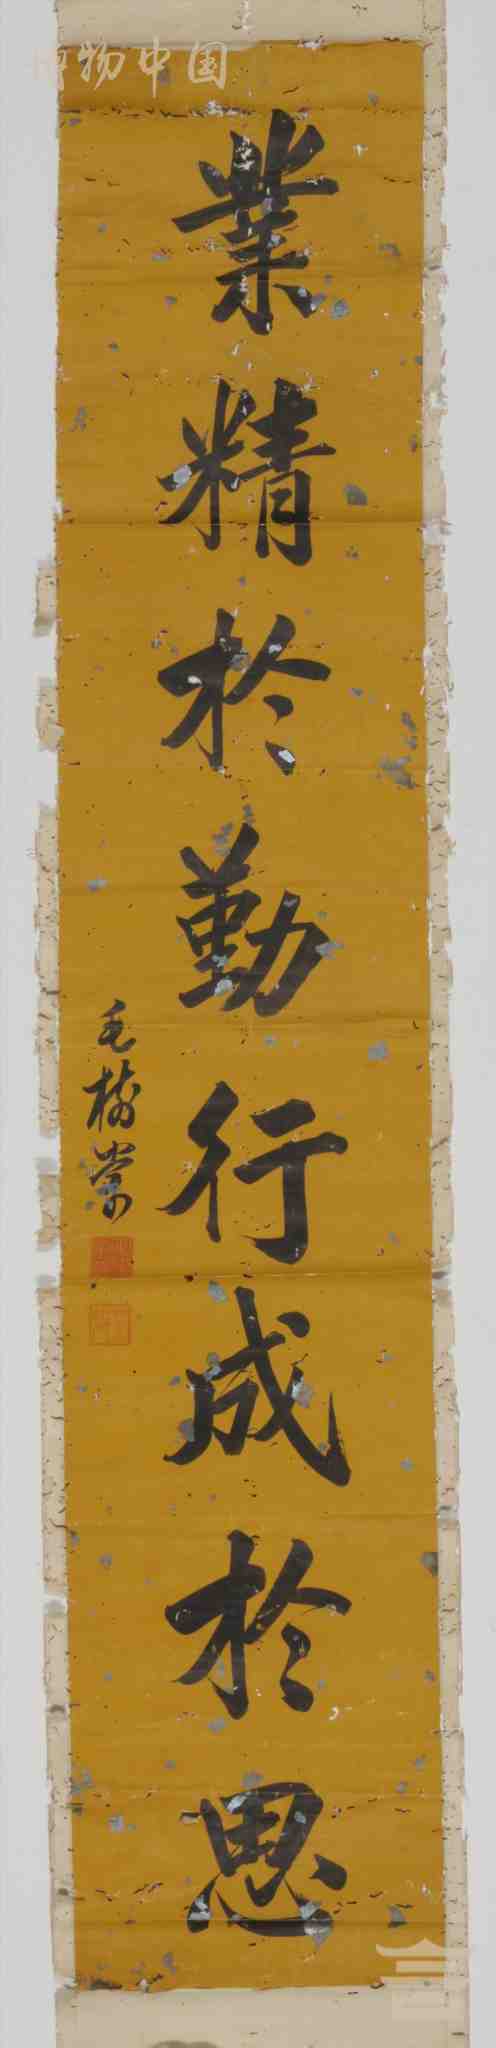 博物中国
業精於勤行成於思
毛樹棠